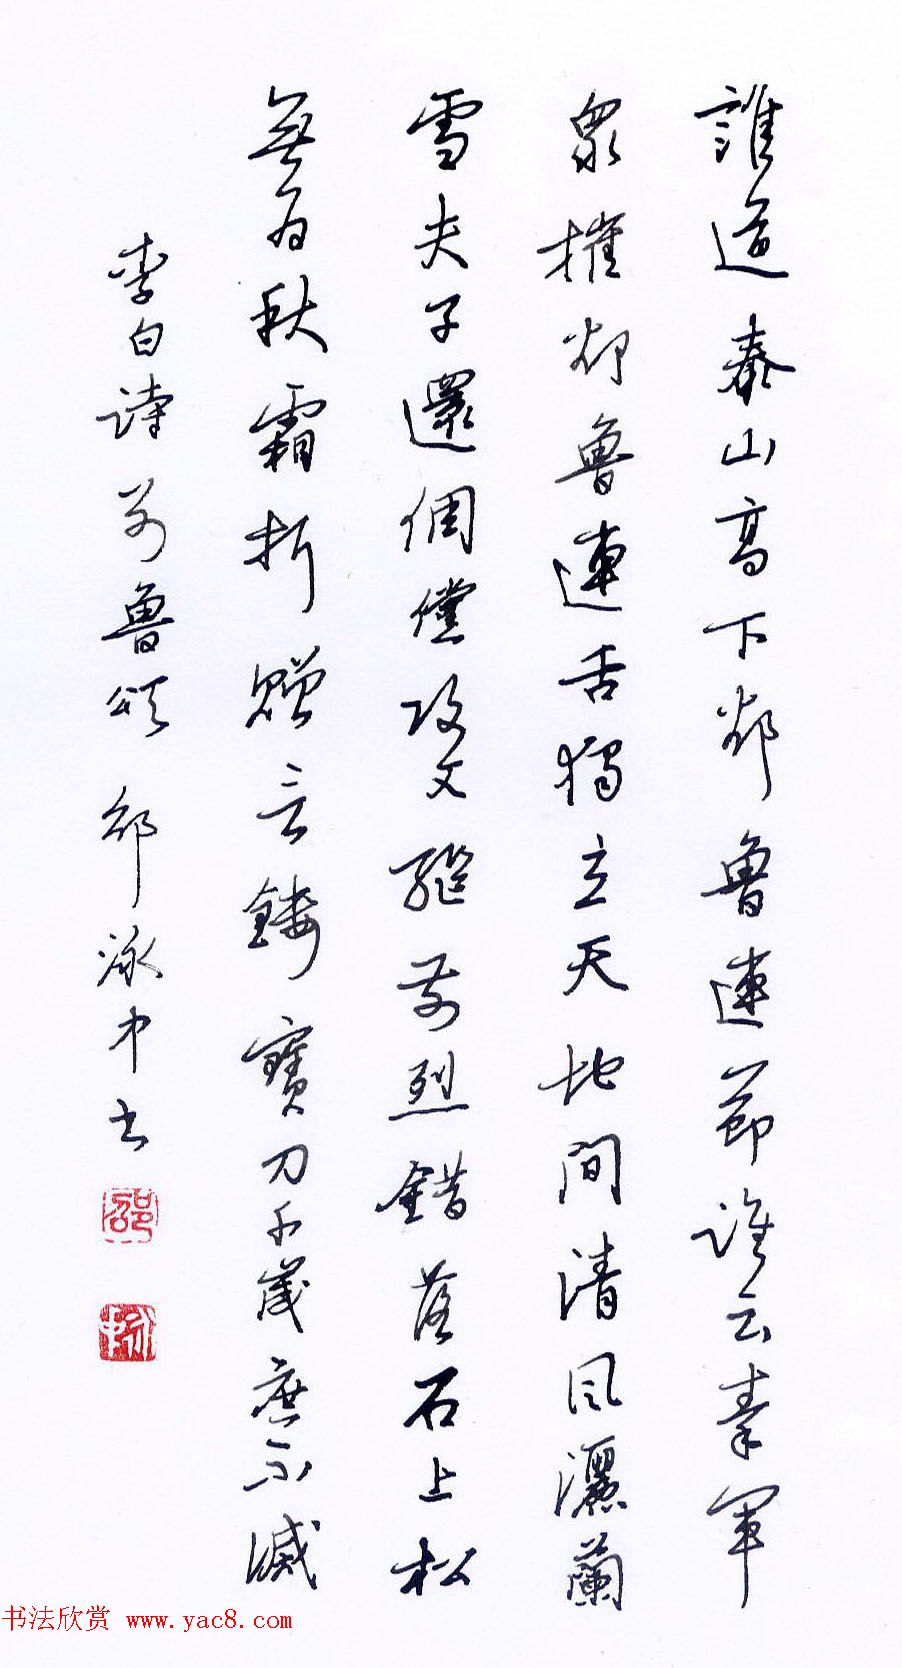 誰道泰山高下卻魯連節誰云秦軍
眾摧卻魯連舌獨立天地間清風灑蘭
雪夫子還倜儻攻文繼前烈錯落石上松
無為秋霜折贈言鏤寶刀千歲庶不滅
李白詩別魯頌 邵泳中书
邵
泳中
书法欣赏 www.yac8.com